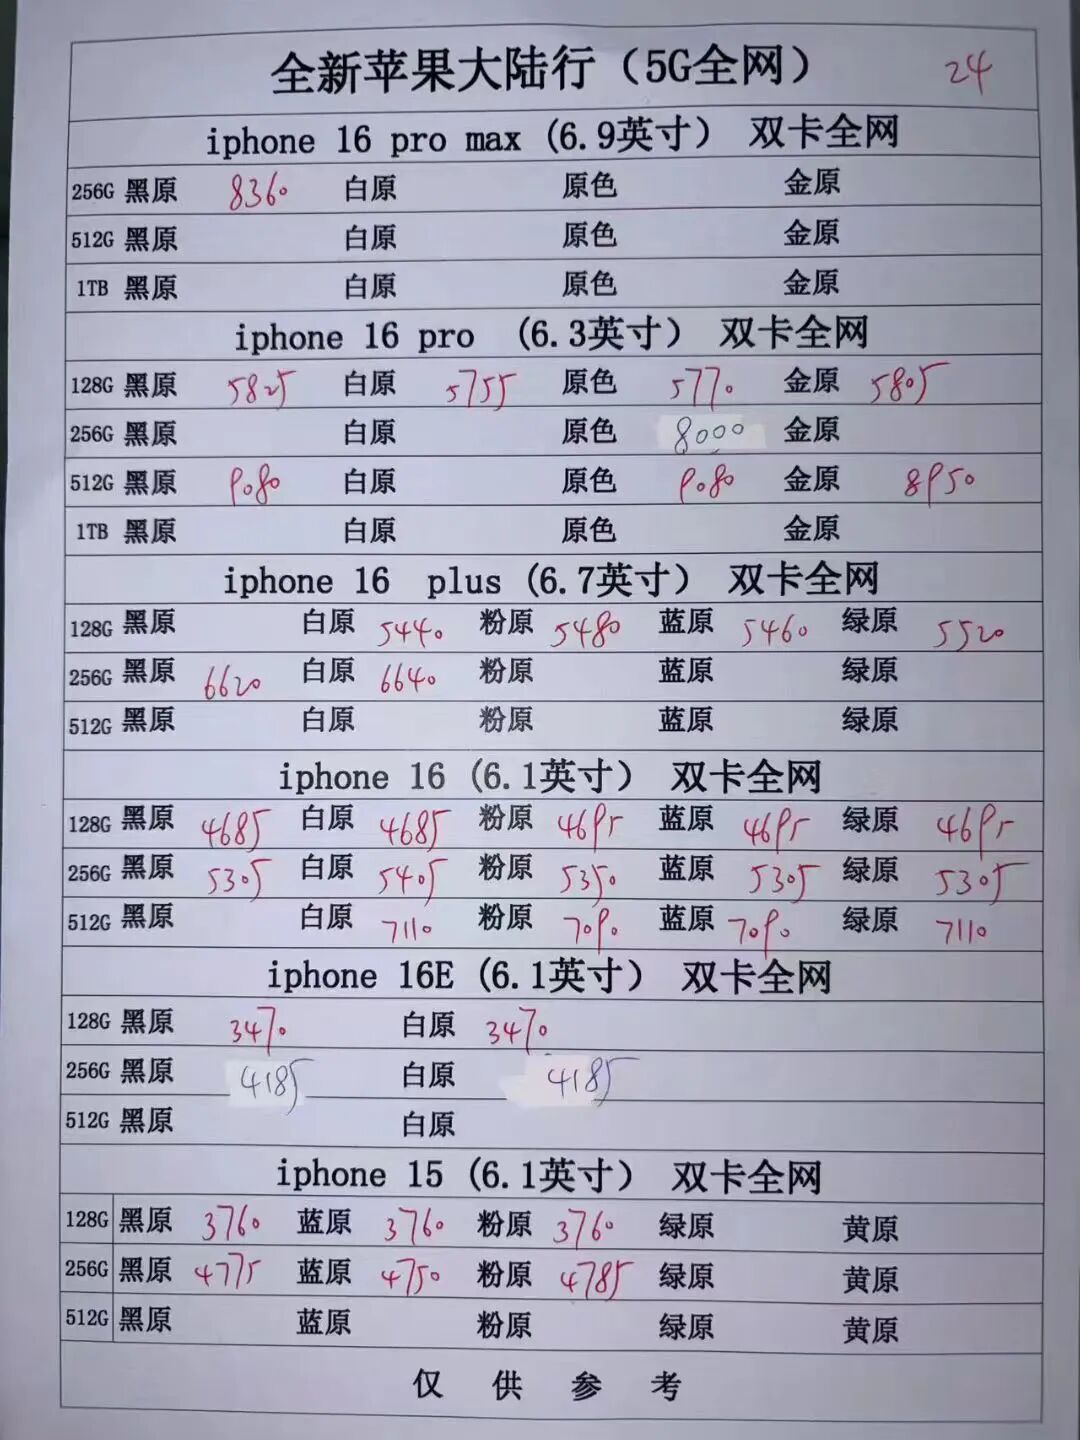 全新苹果大陆行（5G全网） 24
iphone 16 pro max (6.9英寸） 双卡全网
256G 黑原 8360 白原 原色 金原
512G 黑原 白原 原色 金原
1TB 黑原 白原 原色 金原
iphone 16 pro （6.3英寸） 双卡全网
128G 黑原 5825 白原 5755 原色 5770 金原 5805
256G 黑原 白原 原色 8000 金原
512G 黑原 9080 白原 原色 9080 金原 8950
1TB 黑原 白原 原色 金原
iphone 16 plus (6.7英寸） 双卡全网
128G 黑原 白原 5440 粉原 5480 蓝原 5460 绿原 5520
256G 黑原 6620 白原 6640 粉原 蓝原 绿原
512G 黑原 白原 粉原 蓝原 绿原
iphone 16 (6.1英寸） 双卡全网
128G 黑原 4685 白原 4685 粉原 4695 蓝原 4695 绿原 4695
256G 黑原 5305 白原 5405 粉原 5350 蓝原 5305 绿原 5305
512G 黑原 白原 7110 粉原 7090 蓝原 7090 绿原 7110
iphone 16E (6.1英寸） 双卡全网
128G 黑原 3470 白原 3470
256G 黑原 4185 白原 4185
512G 黑原 白原
iphone 15 (6.1英寸） 双卡全网
128G 黑原 3760 蓝原 3760 粉原 3760 绿原 黄原
256G 黑原 4775 蓝原 4750 粉原 4785 绿原 黄原
512G 黑原 蓝原 粉原 绿原 黄原
仅 供 参 考